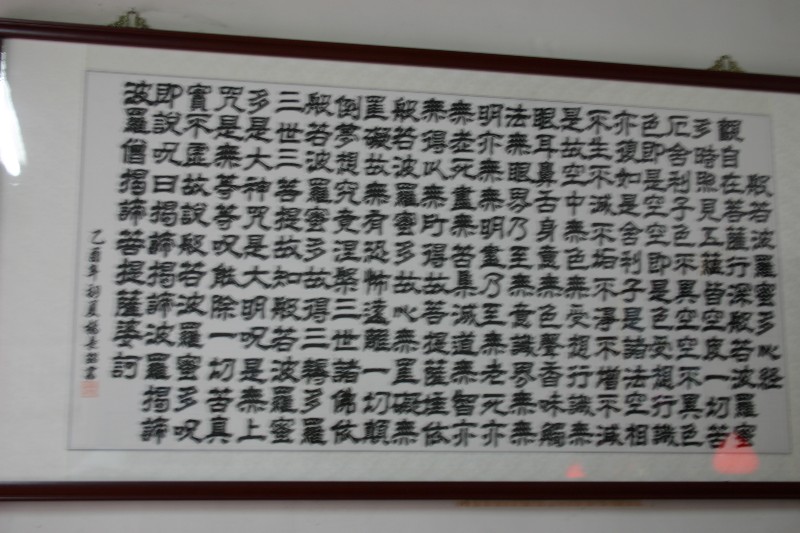 般若波羅蜜多心經
觀自在菩薩行深般若波羅蜜
多時照見五蘊皆空度一切苦
厄舍利子色不異空空不異色
色即是空空即是色受想行識
亦復如是舍利子是諸法空相
不生不滅不垢不淨不增不減
是故空中無色無受想行識無
眼耳鼻舌身意無色聲香味觸
法無眼界乃至無意識界無無
明亦無無明盡乃至無老死亦
無老死盡無苦集滅道無智亦
無得以無所得故菩提薩埵依
般若波羅蜜多故心無罣礙無
罣礙故無有恐怖遠離一切顛
倒夢想究竟涅槃三世諸佛依
般若波羅蜜多故得三耨多羅
三世三菩提故知般若波羅蜜
多是大神咒是大明呪是無上
咒是無等等呪能除一切苦真
實不虛故說般若波羅蜜多呪
即說呪曰揭諦揭諦波羅揭諦
波羅僧揭諦菩提薩婆訶
乙酉年初夏楊書